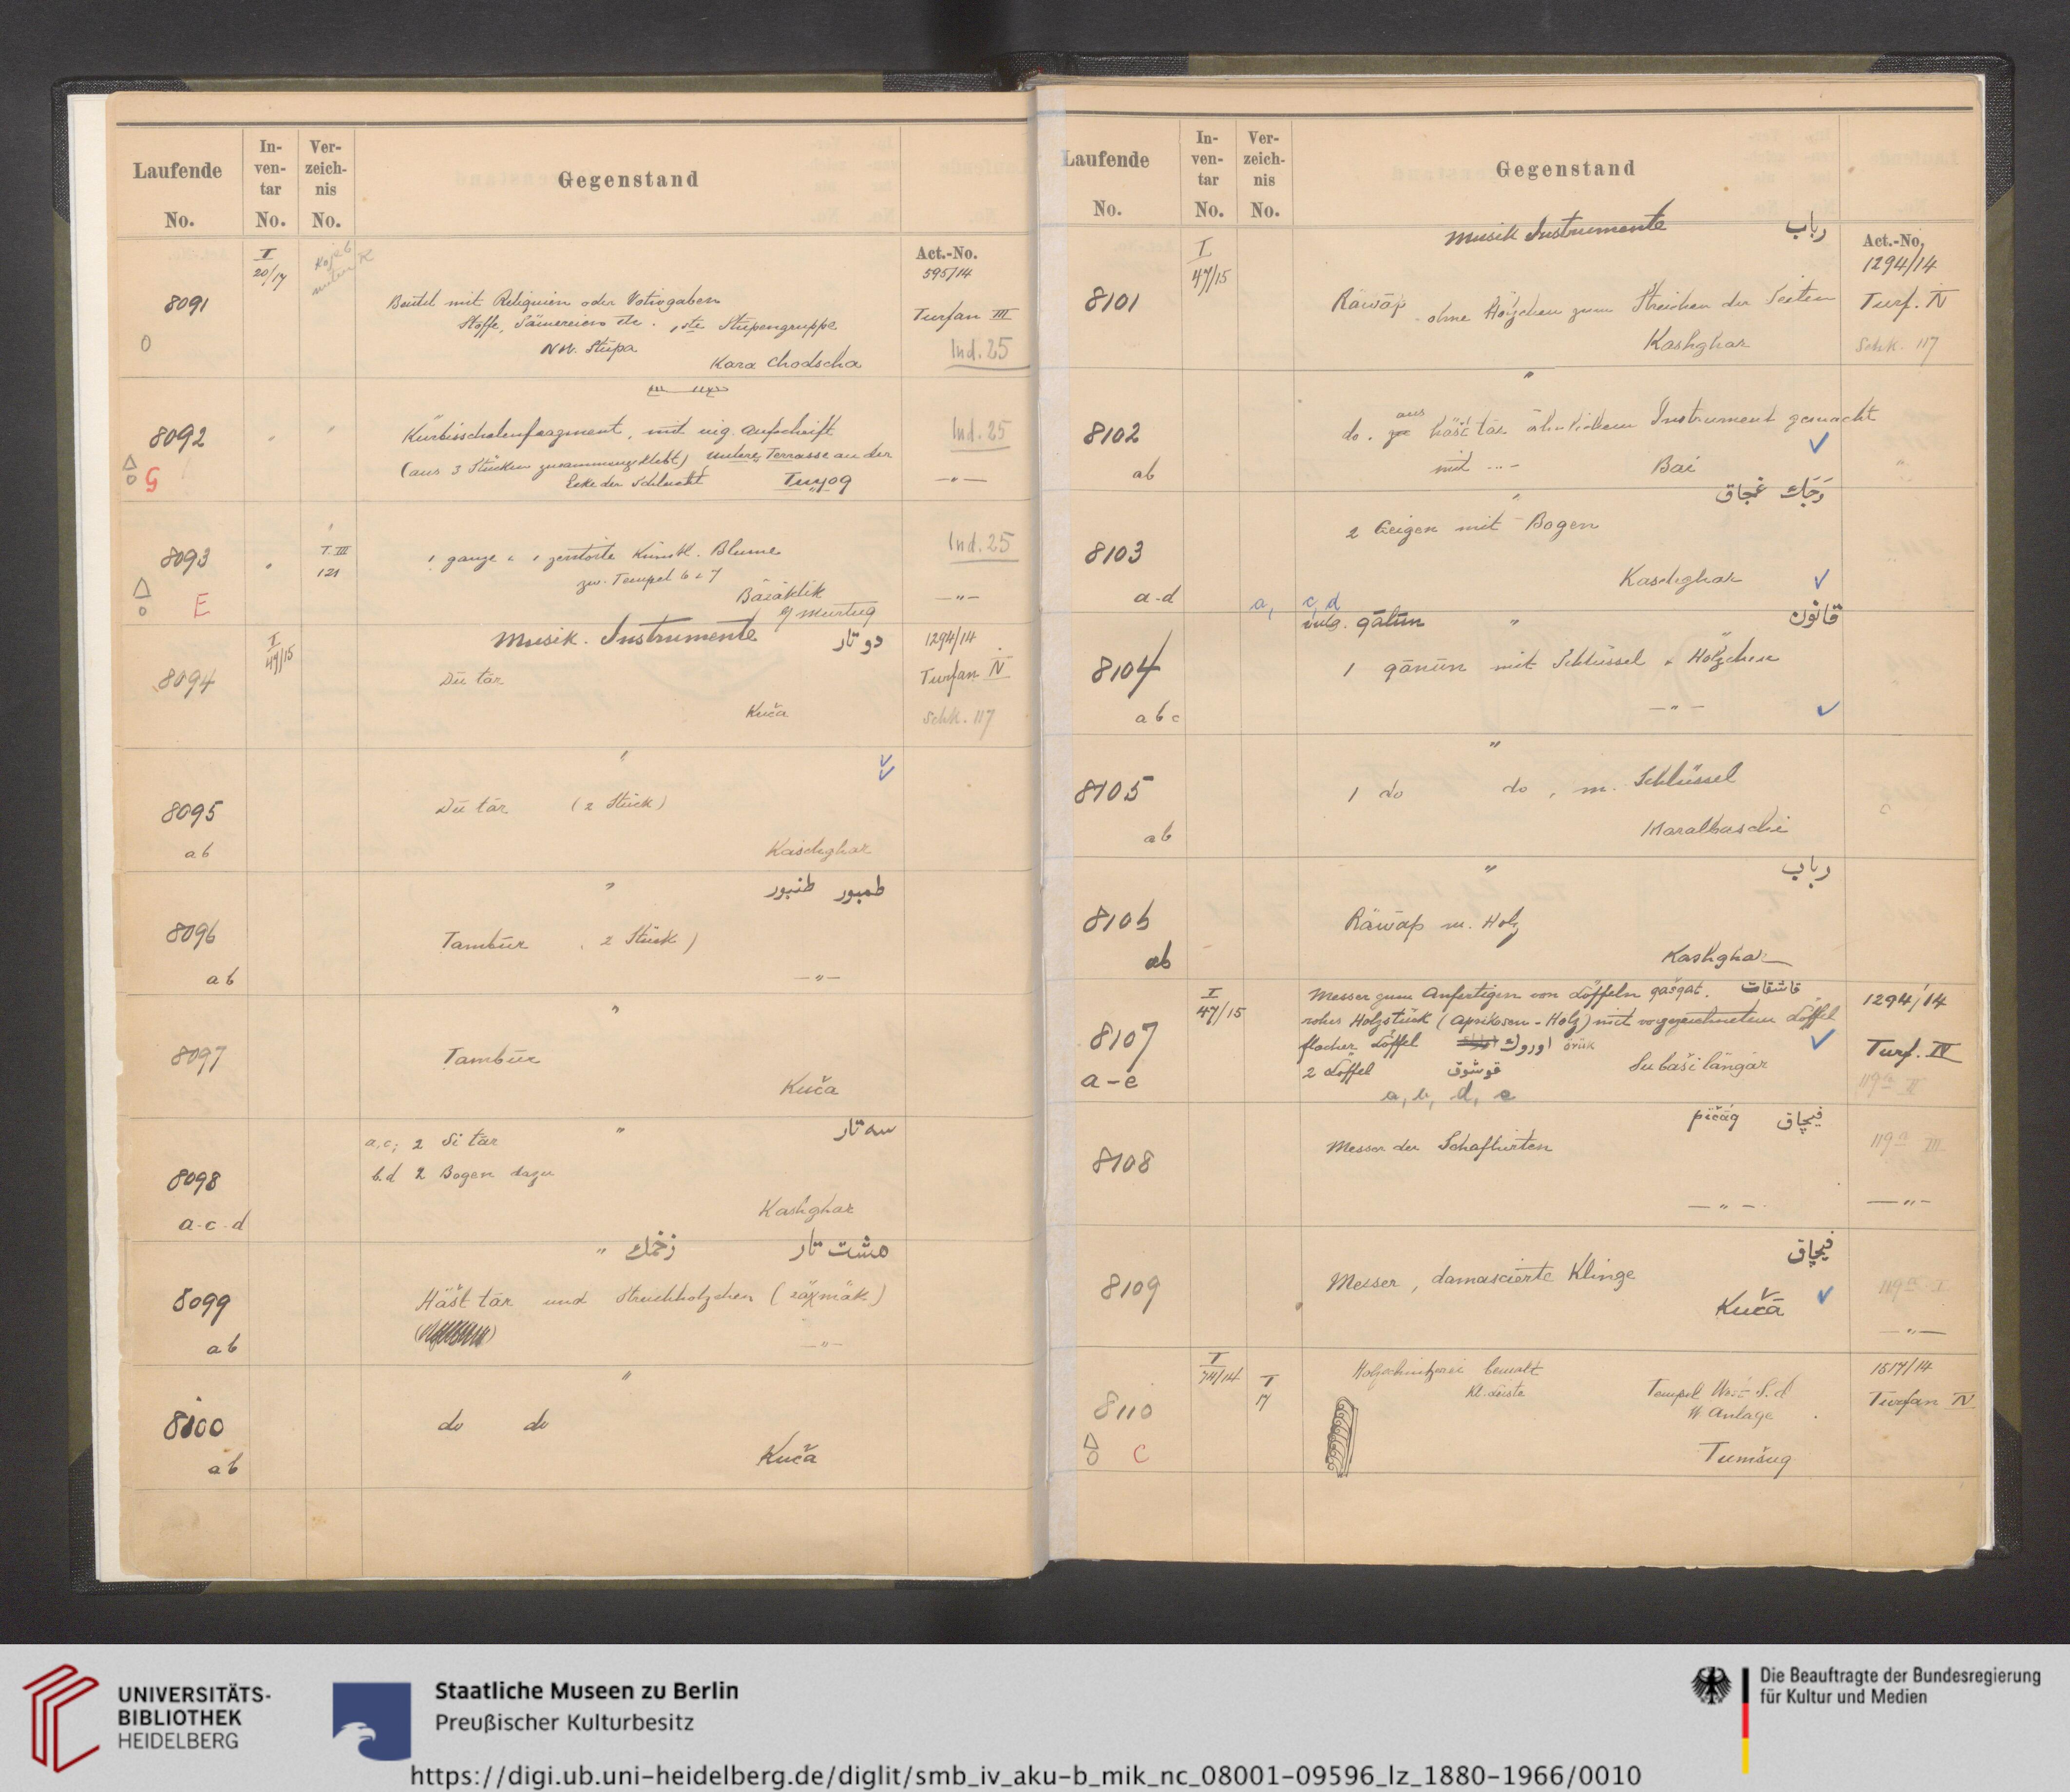 Laufende
No.
In-
ven-
tar
No.
Ver-
zeich-
nis
No.
Gegenstand
8091
I
20/14
Beutel mit Reliquien oder Votivgaben
Stoffe, Sämereien etc. 1ste Stupengruppe
NW. Stupa
Kara Chodscha
Act.-No.
595/14
Turfan III
Ind. 25
8092
G
"
"
Kürbisschalenfragment, mit uig. Aufschrift
(aus 3 Stücken zusammengeklebt) untere Terrasse an der
Ecke der Schlucht Tuyoq
Ind. 25
—"—
8093
E
"
T. III
121
1 ganze u 1 zerstörte künstl. Blume
zw. Tempel 6 u 7
Bäzäklik
b/ Murtuq
Ind. 25
—"—
8094
I
47/15
Musik. Instrumente دو تار
Dū tār
Kuča
1294/14
Turfan IV
Schk. 117
8095
ab
"
Dū tār (2 Stück)
Kaschghar
8096
ab
" طنبور طمبور
Tambūr (2 Stück)
—"—
8097
"
Tambūr
Kuča
8098
a-c-d
" سه تار
a,c; 2 Si tār
b.d 2 Bogen dazu
Kashghar
8099
ab
" زخمك هشت تار
Häšt tār und Streichhölzchen (zäχmäk)
—"—
8100
ab
"
do do
Kuča
Laufende
No.
In-
ven-
tar
No.
Ver-
zeich-
nis
No.
Gegenstand
8101
I
47/15
Musik Instrumente رباب
Räwāp ohne Hölzchen zum Streichen der Seiten
Kashghar
Act.-No.
1294/14
Turf. IV
Schk. 117
8102
ab
"
do. aus häšt tār ähnlichem Instrument gemacht
mit
Bai
8103
a-d
" غجاق
2 Geigen mit Bogen
Kaschghar
a, c, d
8104
abc
vulg. qālūn " قانون
1 qānūn mit Schlüssel u Hölzchen
—"—
8105
ab
"
1 do do, m. Schlüssel
Maralbaschi
8106
ab
" رباب
Räwāp m. Holz
Kashghar
8107
a-e
I
47/15
Messer zum Anfertigen von Löffeln qašqat. قاشقات
rohes Holzstück (Aprikosen-Holz) mit vorgezeichnetem Löffel
flacher Löffel اوروك örük
2 Löffel قوشوق Subaši längär
a, b, d, e
1294/14
Turf. IV
119a II
8108
pičāq فيچاق
Messer der Schafhirten
—"—
119a III
—"—
8109
فيچاق
Messer, damascierte Klinge
Kučā
119a I
—"—
8110
C
I
74/14
T
17
Holzschnitzerei bemalt
Kl. Leiste
Tempel
Anlage
Tumšuq
1517/14
Turfan IV
UNIVERSITÄTS-
BIBLIOTHEK
HEIDELBERG
Staatliche Museen zu Berlin
Preußischer Kulturbesitz
Die Beauftragte der Bundesregierung
für Kultur und Medien
https://digi.ub.uni-heidelberg.de/diglit/smb_iv_aku-b_mik_nc_08001-09596_lz_1880-1966/0010